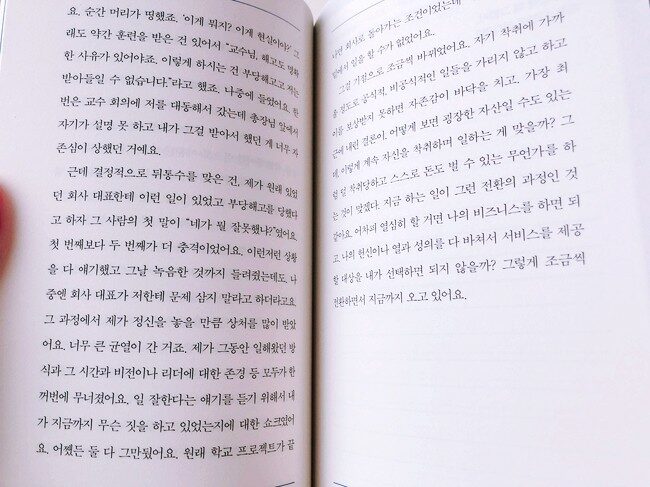 요. 순간 머리가 띵했죠. '이게 뭐지? 이게 현실이야?' 그
래도 약간 훈련을 받은 건 있어서 "교수님, 해고도 명확
한 사유가 있어야죠. 이렇게 하시는 건 부당해고고 저는
받아들일 수 없습니다."라고 했죠. 나중에 들었어요. 한
번은 교수 회의에 저를 대동해서 갔는데 총장님 앞에서
자기가 설명 못 하고 내가 그걸 받아서 했던 게 너무 자
존심이 상했던 거예요.
근데 결정적으로 뒤통수를 맞은 건, 제가 원래 있었
던 회사 대표한테 이런 일이 있었고 부당해고를 당했다
고 하자 그 사람의 첫 말이 "네가 뭘 잘못했냐?"였어요.
첫 번째보다 두 번째가 더 충격이었어요. 이런저런 상황
을 다 얘기했고 그날 녹음한 것까지 들려줬는데도, 나
중엔 회사 대표가 저한테 문제 삼지 말라고 하더라고요.
그 과정에서 제가 정신을 놓을 만큼 상처를 많이 받았
어요. 너무 큰 균열이 간 거죠. 제가 그동안 일해왔던 방
식과 그 시간과 비전이나 리더에 대한 존경 등 모두가 한
꺼번에 무너졌어요. 일 잘한다는 얘기를 듣기 위해서 내
가 지금까지 무슨 짓을 하고 있었는지에 대한 쇼크였어
요. 어쨌든 둘 다 그만뒀어요. 원래 학교 프로젝트가 끝
나면 회사로 돌아가는 조건이었는데
밑에서 일을 할 수가 없었어요.
그걸 기점으로 조금씩 바뀌었어요. 자기 착취에 가까
울 정도로 공식적, 비공식적인 일들을 가리지 않고 하고
이를 보상받지 못하면 자존감이 바닥을 치고. 가장 최
근에 내린 결론이, 어떻게 보면 굉장한 자산일 수도 있는
데, 이렇게 계속 자신을 착취하며 일하는 게 맞을까? 그
럼 덜 착취당하고 스스로 돈도 벌 수 있는 무언가를 하
는 것이 맞겠다. 지금 하는 일이 그런 전환의 과정인 것
같아요. 어차피 열심히 할 거면 나의 비즈니스를 하면 되
고, 나의 헌신이나 열과 성의를 다 바쳐서 서비스를 제공
할 대상을 내가 선택하면 되지 않을까? 그렇게 조금씩
전환하면서 지금까지 오고 있어요.